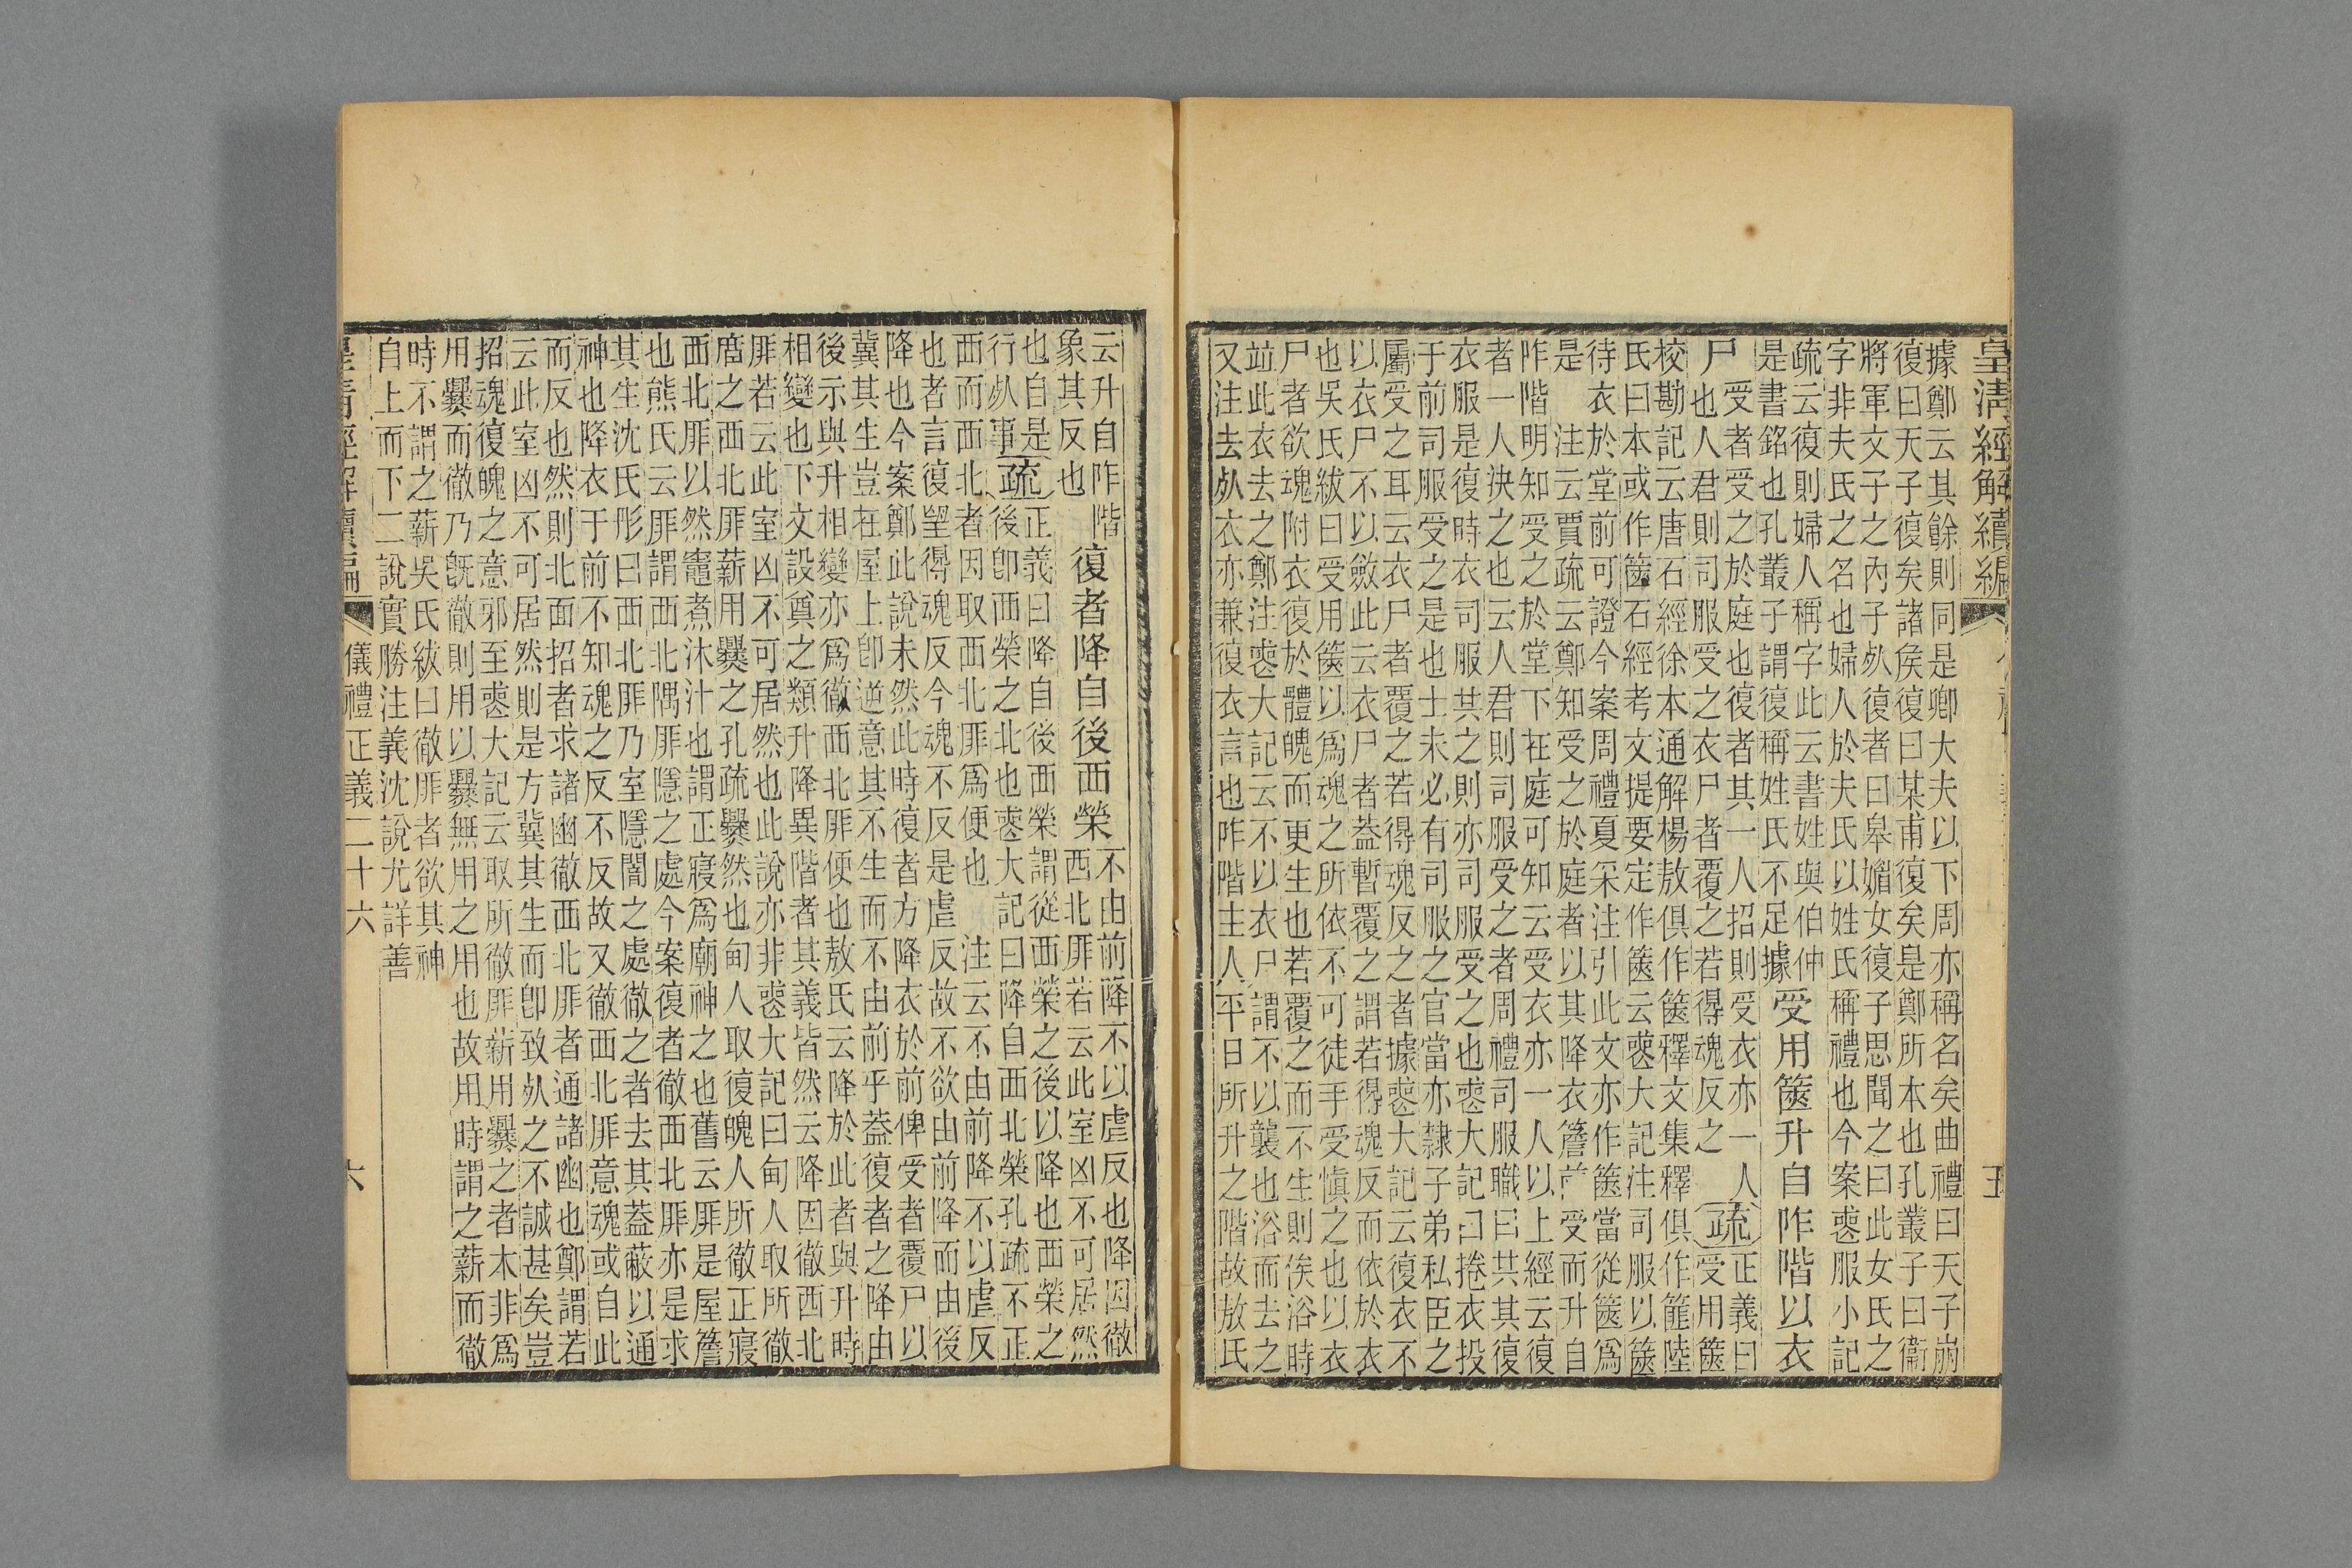 皇清經解續編
五
據鄭云其餘則同是卿大夫以下周亦稱名矣曲禮曰天子崩
復曰天子復矣諸侯復曰某甫復矣是鄭所本也孔叢子曰衞
將軍文子之內子𣦸復者曰皋媚女復子思聞之曰此女氏之
字非夫氏之名也婦人於夫氏以姓氏稱禮也今案喪服小記
疏云復則婦人稱字此云書姓與伯仲
是書銘也孔叢子謂復稱姓氏不足據
受用篋升自阼階以衣
尸
受者受之於庭也復者其一人招則受衣亦一人
也人君則司服受之衣尸者覆之若得魂反之
疏
正義曰
受用篋
校勘記云唐石經徐本通解楊敖俱作篋釋文集釋俱作簏陸
氏曰本或作篋石經考文提要定作篋云喪大記注司服以篋
待衣於堂前可證今案周禮夏采注引此文亦作篋當從篋為
是　注云賈疏云鄭知受之於庭者以其降衣簷前受而升自
阼階明知受之於堂下在庭可知云受衣亦一人以上經云復
者一人決之也云人君則司服受之者周禮司服職曰共其復
衣服是復時衣司服共之則亦司服受之也喪大記曰捲衣投
于前司服受之是也士未必有司服之官當亦隸子弟私臣之
屬受之耳云衣尸者覆之若得魂反之者據喪大記云復衣不
以衣尸不以斂此云衣尸者葢暫覆之謂若得魂反而依於衣
也吳氏紱曰受用篋以為魂之所依不可徒手受慎之也以衣
尸者欲魂附衣復於體魄而更生也若覆之而不生則俟浴時
竝此衣去之鄭注喪大記云不以衣尸謂不以襲也浴而去之
又注去𣦸衣亦兼復衣言也阼階主人平日所升之階故敖氏
云升自阼階
象其反也
復者降自後西榮
不由前降不以虛反也降因徹
西北厞若云此室凶不可居然
也自是
行𣦸事
疏
正義曰降自後西榮謂從西榮之後以降也西榮之
後卽西榮之北也喪大記曰降自西北榮孔疏不正
西而西北者因取西北厞為便也　注云不由前降不以虛反
也者言復望得魂反今魂不反是虛反故不欲由前降而由後
降也今案鄭此說未然此時復者方降衣於前俾受者覆尸以
冀其生豈在屋上卽逆意其不生而不由前乎葢復者之降由
後示與升相變亦為徹西北厞便也敖氏云降於此者與升時
相變也下文設奠之類升降異階者其義皆然云降因徹西北
厞若云此室凶不可居然也此說亦非喪大記曰甸人取所徹
廟之西北厞薪用爨之孔疏爨然也甸人取復魄人所徹正寢
西北厞以然竈煮沐汁也謂正寢為廟神之也舊云厞是屋簷
也熊氏云厞謂西北隅厞隱之處今案復者徹西北厞亦是求
其生沈氏彤曰西北厞乃室隱闇之處徹之者去其葢蔽以通
神也降衣于前不知魂之反不反故又徹西北厞意魂或自此
而反也然則北面招者求諸幽徹西北厞者通諸幽也鄭謂若
云此室凶不可居然則是方冀其生而卽致𣦸之不誠甚矣豈
招魂復魄之意邪至喪大記云取所徹厞薪用爨之者木非為
用爨而徹乃旣徹則用以爨無用之用也故用時謂之薪而徹
時不謂之薪吳氏紱曰徹厞者欲其神
自上而下二說實勝注義沈說尤詳善
皇清經解續編
儀禮正義二十六
六